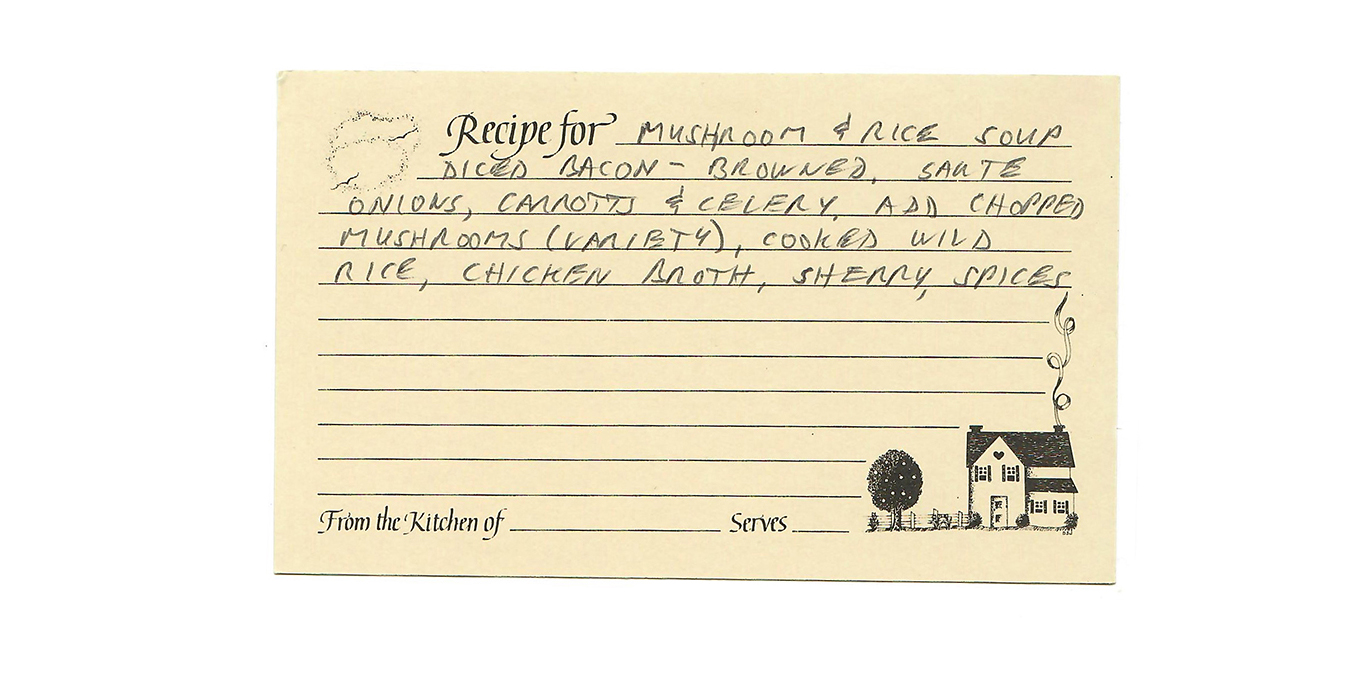 Recipe for MUSHROOM & RICE SOUP
DICED BACON - BROWNED, SAUTE
ONIONS, CARROTTS & CELERY, ADD CHOPPED
MUSHROOMS (VARIETY), COOKED WILD
RICE, CHICKEN BROTH, SHERRY, SPICES
From the Kitchen of Serves